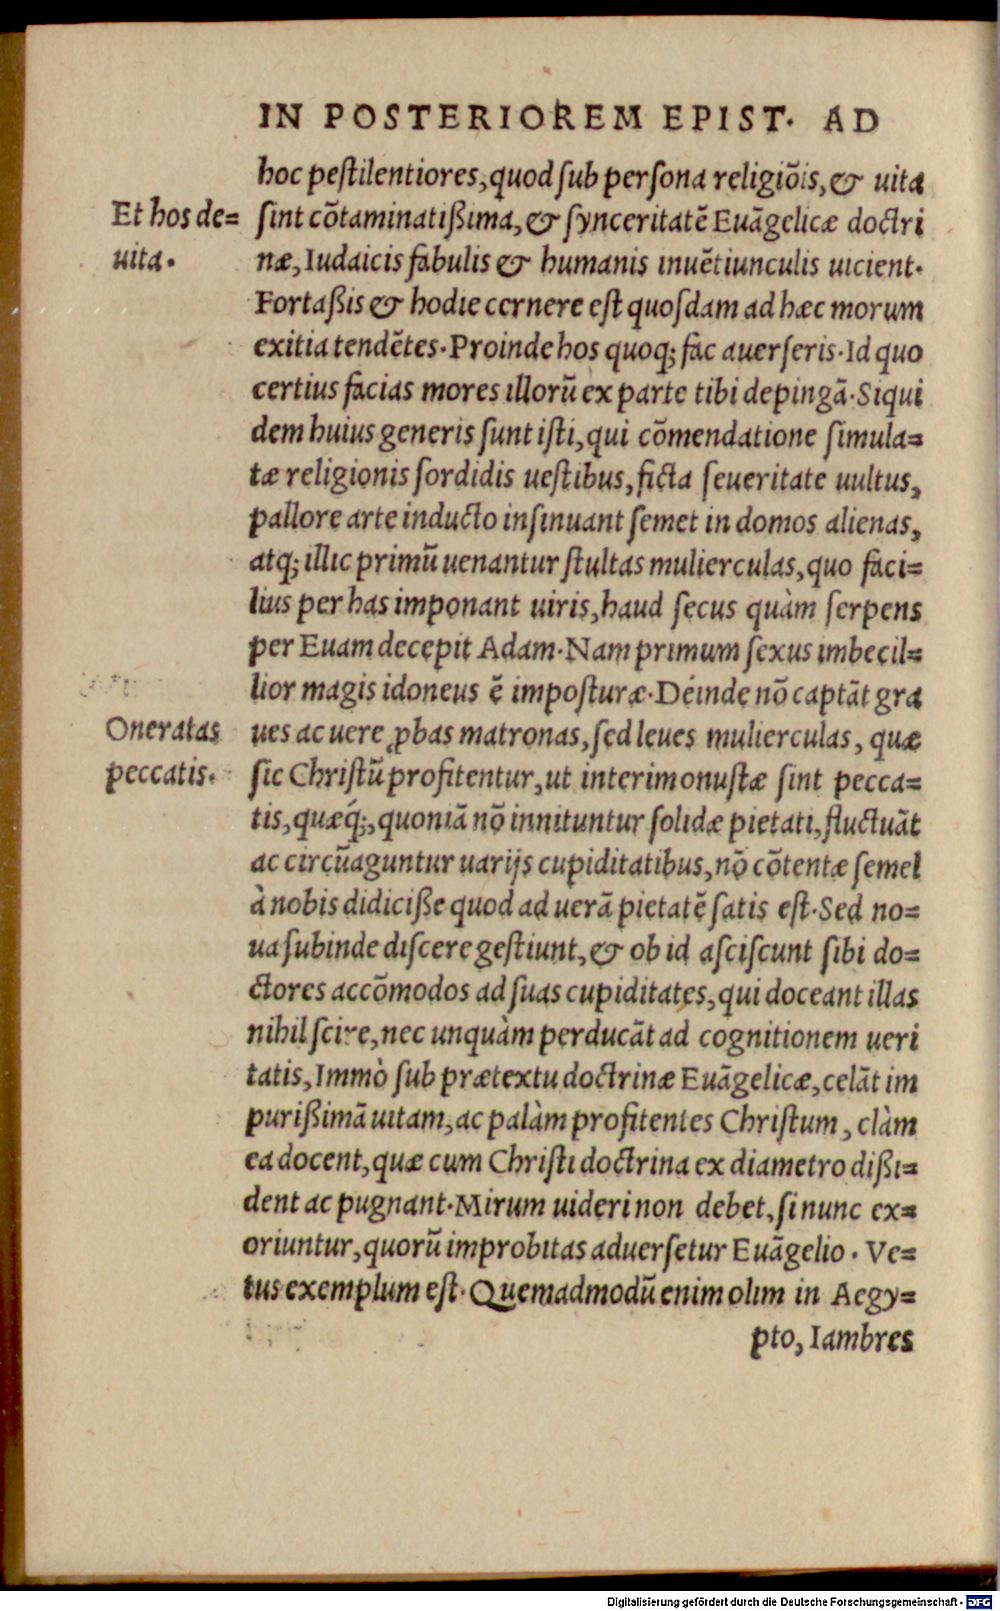 IN POSTERIOREM EPIST. AD
hoc peſtilentiores, quod ſub perſona religiõis, & uita
Et hos de=
uita.
ſint cõtaminatißima, & ſynceritatẽ Euãgelicæ doctri
næ, Iudaicis fabulis & humanis inuẽtiunculis uicient.
Fortaßis & hodie cernere eſt quoſdam ad hæc morum
exitia tendẽtes. Proinde hos quoq; fac auerſeris. Id quo
certius facias mores illorũ ex parte tibi depingã. Siqui
dem huius generis ſunt iſti, qui cõmendatione ſimula=
tæ religionis ſordidis ueſtibus, ficta ſeueritate uultus,
pallore arte inducto inſinuant ſemet in domos alienas,
atq; illic primũ uenantur ſtultas mulierculas, quo faci=
lius per has imponant uiris, haud ſecus quàm ſerpens
per Euam decepit Adam. Nam primum ſexus imbecil=
lior magis idoneus ẽ impoſturæ. Deinde nõ captãt gra
Oneratas
peccatis.
ues ac uere ꝓbas matronas, ſed leues mulierculas, quæ
ſic Chriſtũ profitentur, ut interim onuſtæ ſint pecca=
tis, quæq́;, quoniã nõ innituntur ſolidæ pietati, fluctuãt
ac circũaguntur uarijs cupiditatibus, nõ cõtentæ ſemel
à nobis didiciße quod ad uerã pietatẽ ſatis eſt. Sed no=
ua ſubinde diſcere geſtiunt, & ob id aſciſcunt ſibi do=
ctores accõmodos ad ſuas cupiditates, qui doceant illas
nihil ſcire, nec unquàm perducãt ad cognitionem ueri
tatis, Immò ſub prætextu doctrinæ Euãgelicæ, celãt im
purißimã uitam, ac palàm profitentes Chriſtum, clàm
ea docent, quæ cum Chriſti doctrina ex diametro dißi=
dent ac pugnant. Mirum uideri non debet, ſi nunc ex=
oriuntur, quorũ improbitas aduerſetur Euãgelio. Ve=
tus exemplum eſt. Quemadmodũ enim olim in Aegy=
pto, Iambres
Digitalisierung gefördert durch die Deutsche Forschungsgemeinschaft - DFG